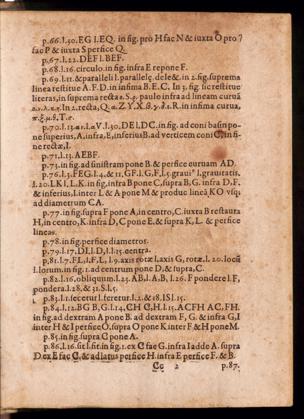 p.66.l.50. EG l. EQ. in fig. pro H fac N & iuxta O pro 7
fac P & iuxta S perfice Q.
p.67.l.22. DEF l. BEF.
p.68.l.16. circulo. in fig. infra E repone F.
p.69.l.11. & paralleli l. parallelę. dele &. in 2. fig. suprema
linea restitue A. F. D. in infima B. E. C. In 3. fig. sic restitue
literas, in suprema recta
In 2. recta, Q. Z. Y. X. R. in infima curua,
p.70.l.13. V. l.50. DE l. DC. in fig. ad coni basin po-
ne superius, A, infra, E, inferius B. ad verticem coni in fi-
ne rectæ, I.
p.71.l.13. AEBF.
p.73. in fig. ad sinistram pone B. & perfice curuam AD.
p.76.l.3. FEG l. 4. & 11, GF l. G, F, l.5. grauis l. grauitatis.
l.20. LK l. L.K. in fig. infra B pone C, supra B, G. infra D, F.
& inferius, I. inter L & A pone M & produc lineā KO vsq;
ad diametrum CA.
p.77. in fig. supra F pone A, in centro, C. iuxta B restaura
H, in centro, K. infra D, C pone E, & supra K, L. & perfice
lineas.
p.78. in fig. perfice diametros.
p.79. l.17. DI l. D, l. l.25. centra.
p.81.l.7. FL, l. F, L, l.9. axis rotæ l. axis G, rotæ, l.20. locū
l. lorum. in fig. 2. ad centrum pone D, & supra, C.
p.82.l.16. obliquum. l.25. AB, l. A, B, l.26. F pondere l. F,
pondera. l.28. & 31. S. l.5.
p.83.l.1. secetur l. feretur. l.2. & 18. l S l.15.
p.84.l.12. BG B, G. l.14. CH C, H. l.15. ACFH AC, FH.
in fig. ad dextram A pone B. ad dextram F, G. & infra G, I
inter H & I perfice Ö. supra O pone K inter F & H pone M.
p.85. in fig. supra C pone A.
p.86.l.16. sit l. sit in fig. 1. ex C fac G. infra I adde A. supra
D. ex E fac C, & ad latus perfice H. infra E perfice F. & B.
Cc 2 p.87.